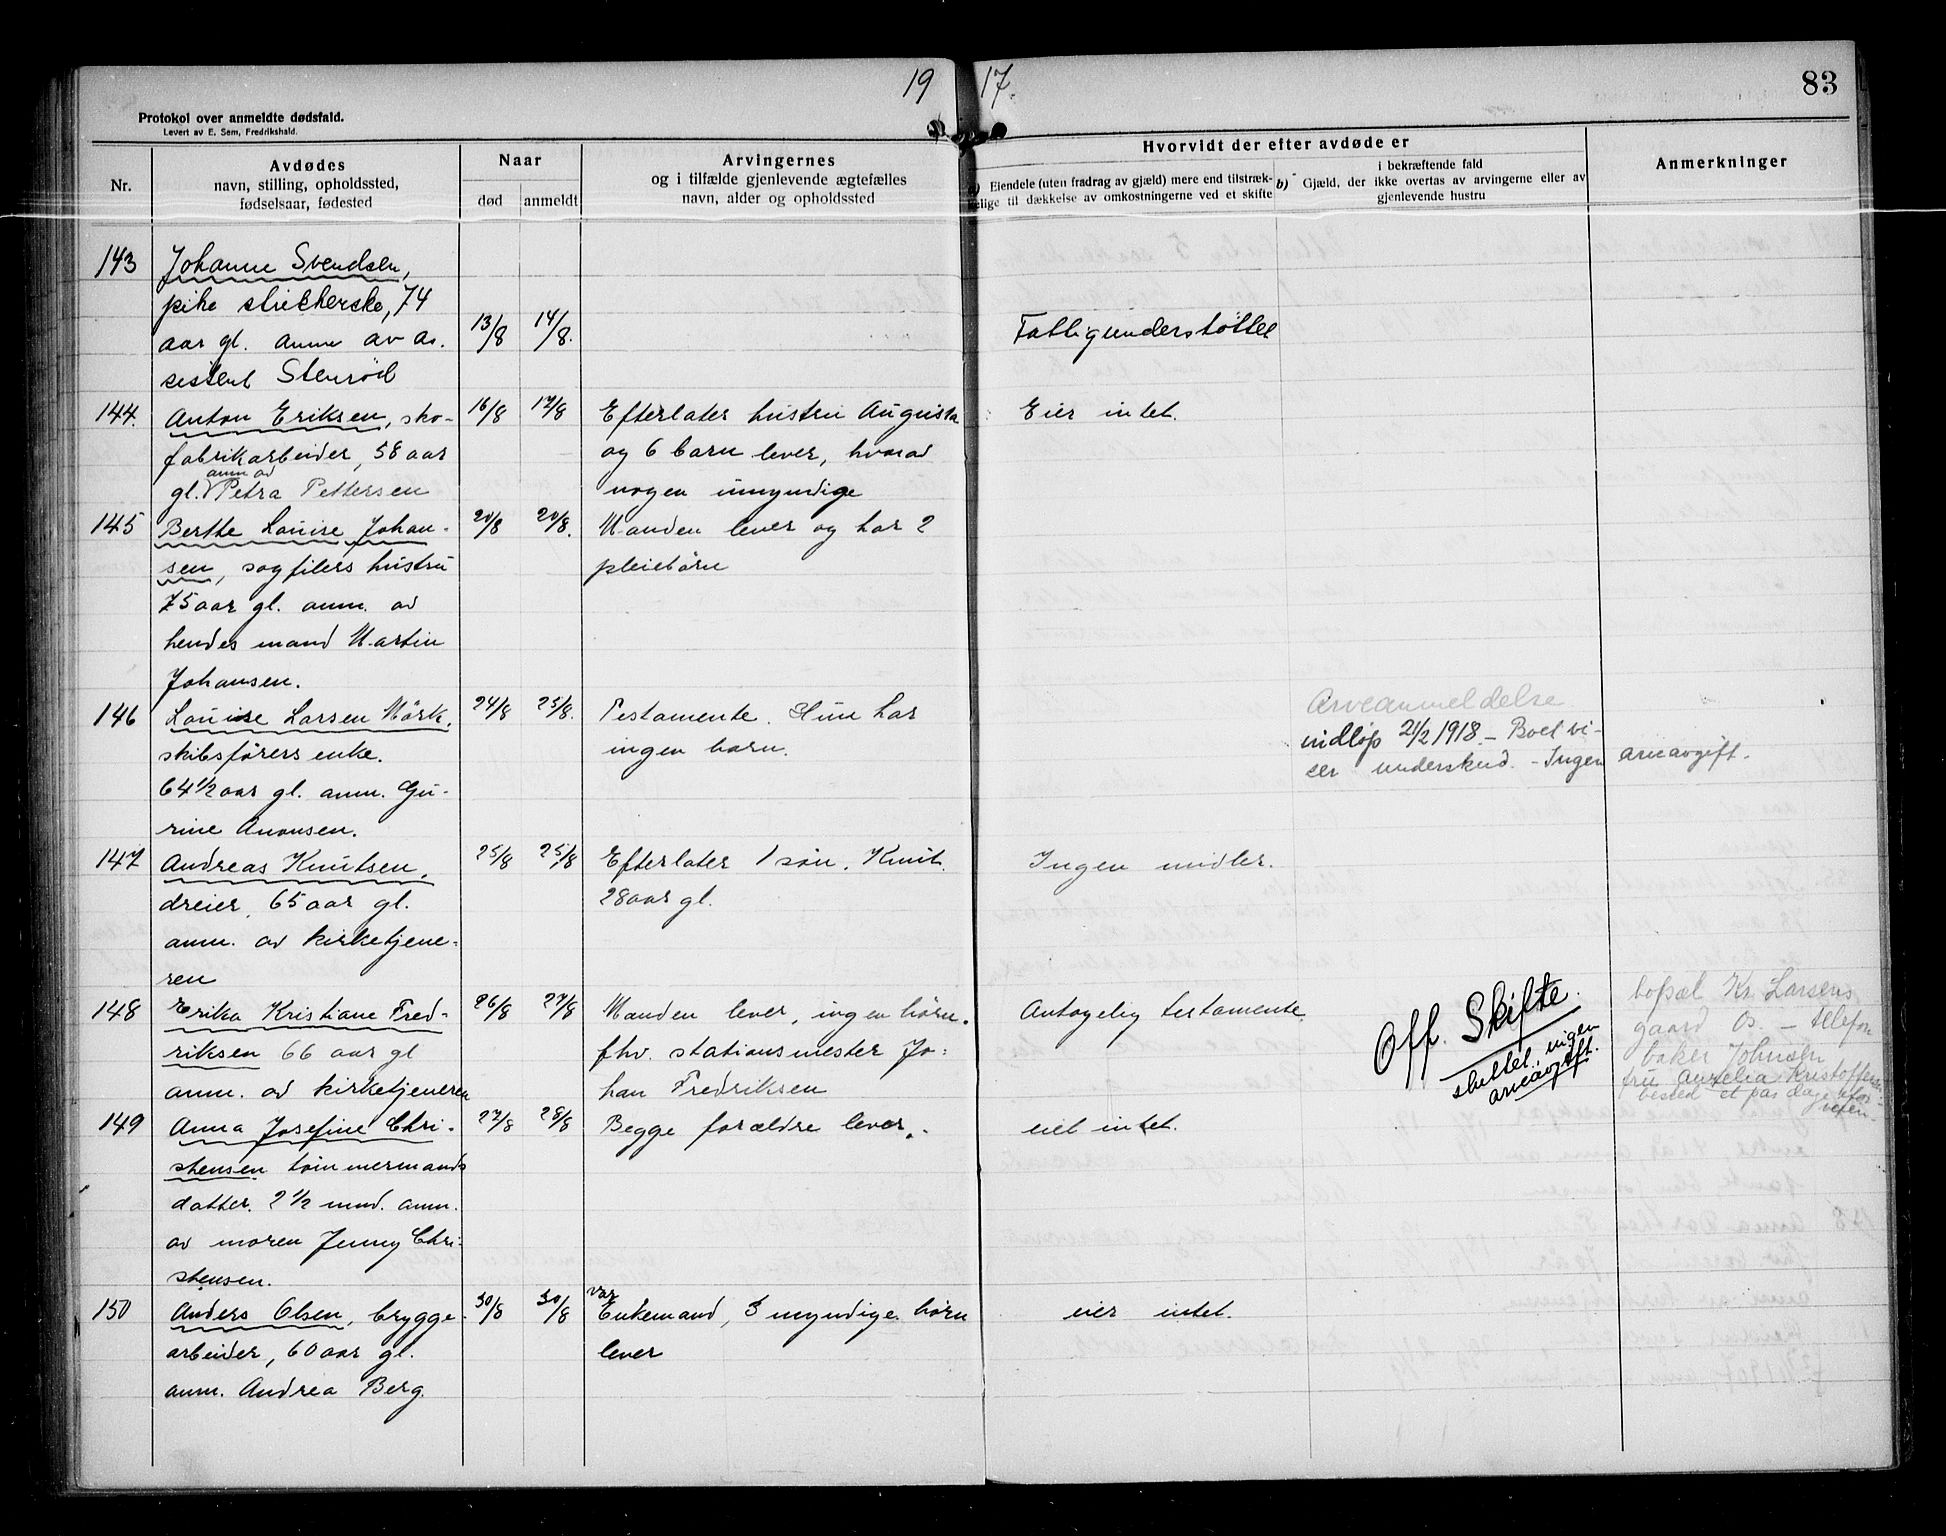 19 17.
83
Protokol over anmeldte dødsfald.
Levert av E. Sem, Fredrikshald.
Nr.
Avdødes
navn, stilling, opholdssted,
fødselsaar, fødested
Naar
død
anmeldt
Arvingernes
og i tilfælde gjenlevende ægtefælles
navn, alder og opholdssted
Hvorvidt der efter avdøde er
a) Eiendele (uten fradrag av gjæld) mere end tilstræk-
kelige til dækkelse av omkostningerne ved et skifte
i bekræftende fald
b) Gjæld, der ikke overtas av arvingerne eller av
gjenlevende hustru
Anmerkninger
143
Johanne Svendsen,
pike strikkerske, 74
aar gl. anm av as.
sistent Stenrød
13/8
14/8.
Fattigunderstøttet
144.
Anton Eriksen, sko-
fabrikarbeider, 58 aar
anm av
gl. Petra Pettersen
16/8
17/8
Efterlater hustru Augusta
og 6 barn lever, hvorav
nogen umyndige
Eier intet.
145
Berthe Louise Johan-
sen, sagfilers hustru
75 aar gl. anm. av
hendes mand Martin
Johansen.
20/8
20/8.
Manden lever og har 2
pleiebørn
146
Louise Larsen Mørk.
skibsførers enke.
64 1/2 aar gl. anm. Gu-
rine Aronsen.
24/8
25/8.
Testamente. Hun har
ingen barn.
Arveanmeldelse
indløp 21/2 1918. – Boet vi-
ser underskud. – Ingen arveavgift.
147
Andreas Knutsen,
dreier, 65 aar gl.
anm. av kirketjene-
ren
25/8
25/8
Efterlater 1 søn. Knut.
28 aar gl.
Ingen midler.
148
Erika Kristiane Fred-
riksen 66 aar gl
anm. av kirketjeneren
26/8
27/8
Manden lever, ingen børn.
fhv. stationsmester Jo-
han Fredriksen
Antagelig testamente.
Off. Skifte.
sluttet, ingen
arveavgift.
bopæl Kr. Larsens
gaard Os. – telefon
baker Johnsen
fru Aurelia Kristoffersen
bested et pas dage efter
149
Anna Josefine Chri-
stensen tømmermands
datter. 2 1/2 mnd. anm.
av moren Jenny Chri-
stensen.
27/8
28/8
Begge forældre lever.
eiet intet.
150
Anders Olsen, brygge-
arbeider, 60 aar gl.
anm. Andrea Berg.
30/8
30/8
var
Enkemand, 3 myndige børn
lever
eier intet.